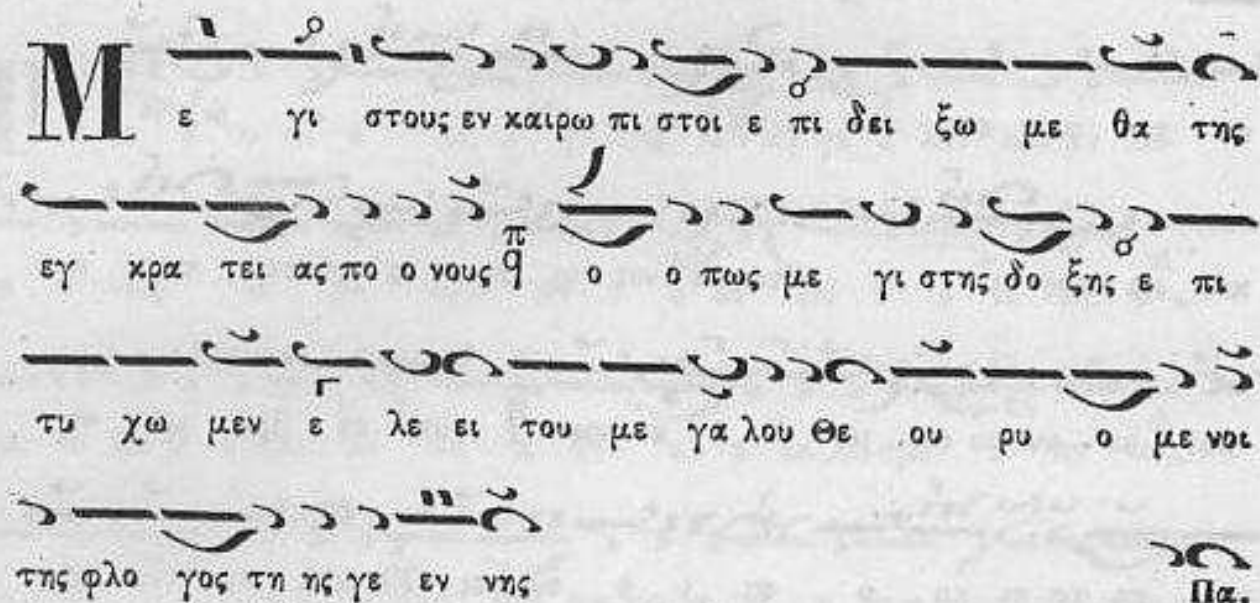 Μ ε γι στους εν καιρω πι στοι ε πι δει ξω με θα της
εγ κρα τει ας πο ο νους π q ο ο πως με γι στης δο ξης ε πι
τυ χω μεν ε λε ει του με γα λου Θε ου ρυ ο με νοι
της φλο γος τη ης γε εν νης
Πα.